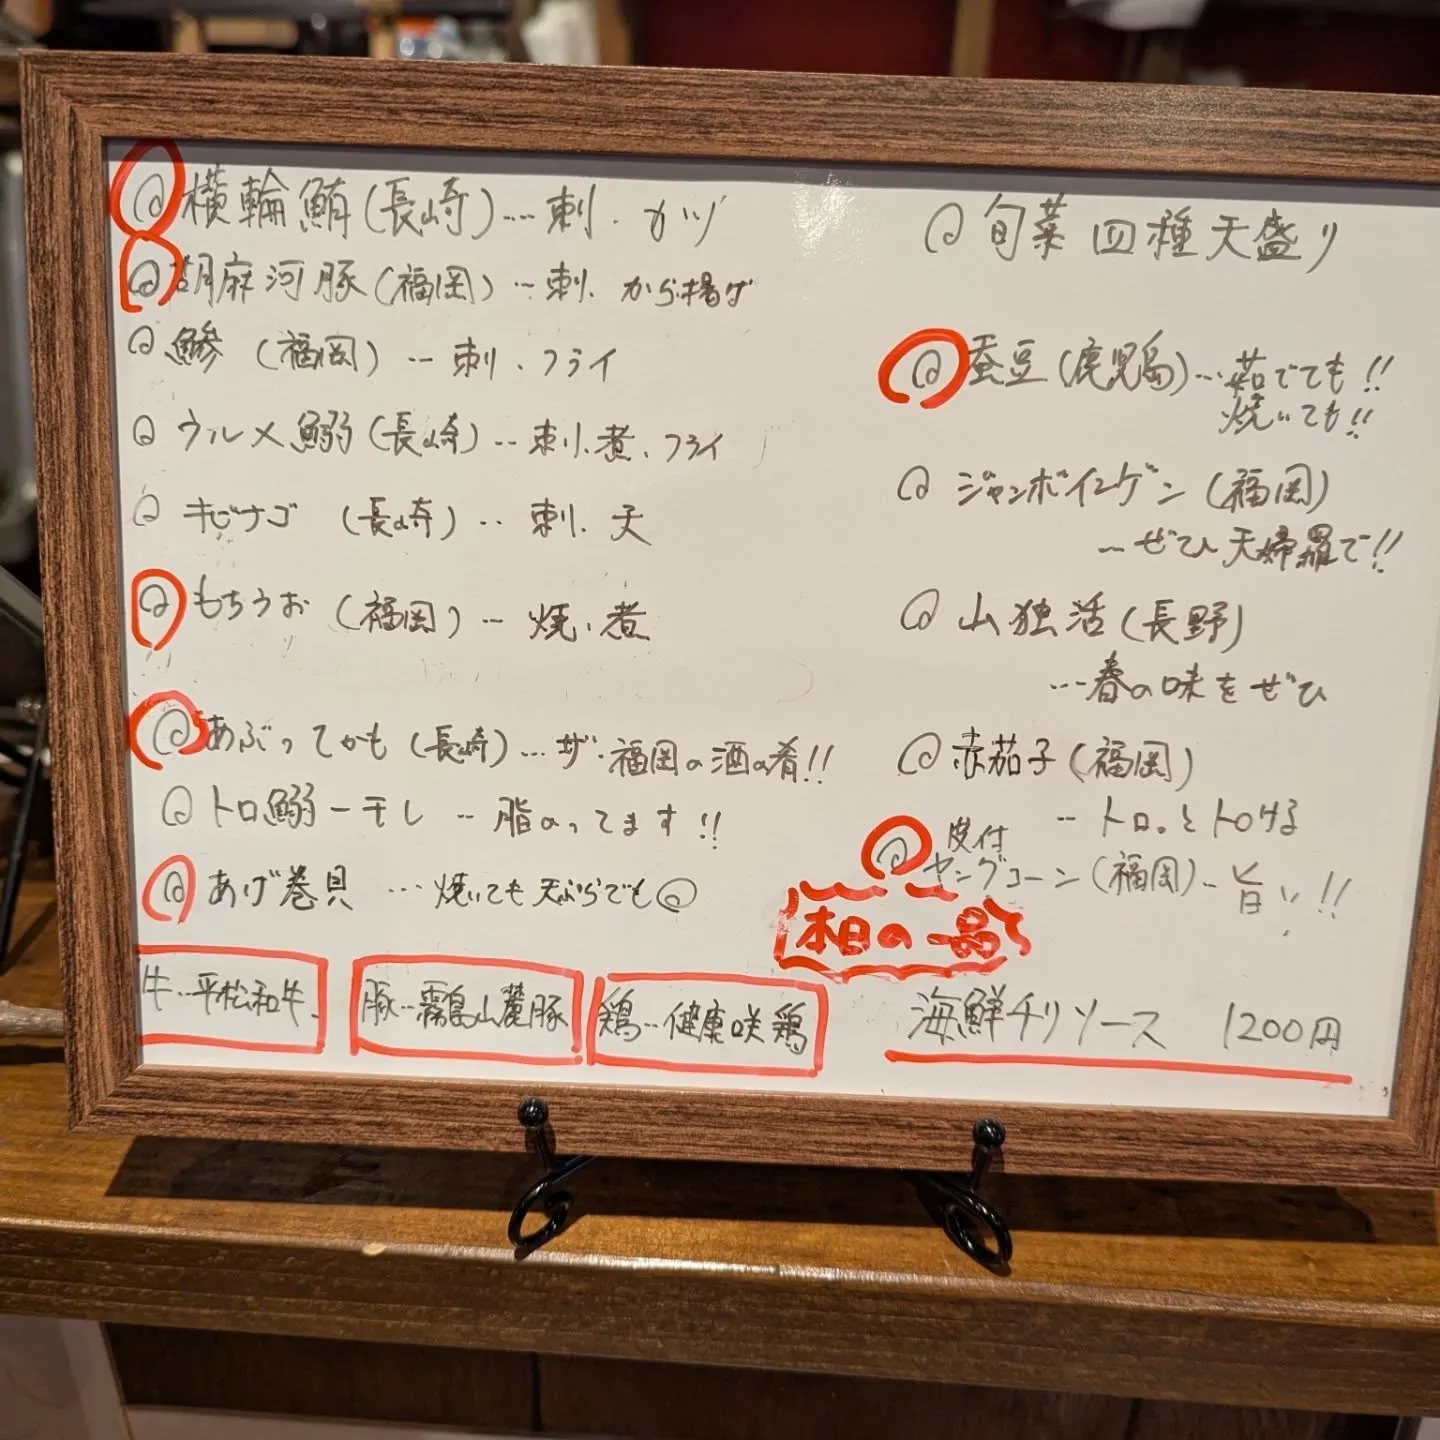 横輪鮪(長崎)…刺.カツ
胡麻河豚(福岡)…刺.から揚げ
鯵(福岡)…刺.フライ
ウルメ鰯(長崎)…刺.煮.フライ
キビナゴ(長崎)…刺.天
もちうお(福岡)…焼.煮
あぶってかも(長崎)…ザ・福岡の酒の肴!!
トロ鰯一干し…脂のってます!!
あげ巻貝…焼いても天ぷらでも
牛…平松和牛
豚…霧島山麓豚
鶏…健康咲鶏
旬菜四種天盛り
蚕豆(鹿児島)…茹でても!!
焼いても!!
ジャンボインゲン(福岡)
…ぜひ天婦羅で!!
山独活(長野)
…春の味をぜひ
赤茄子(福岡)
…トロっとトロける
皮付
ヤングコーン(福岡)…旨い!!
本日の一品
海鮮チリソース 1200円